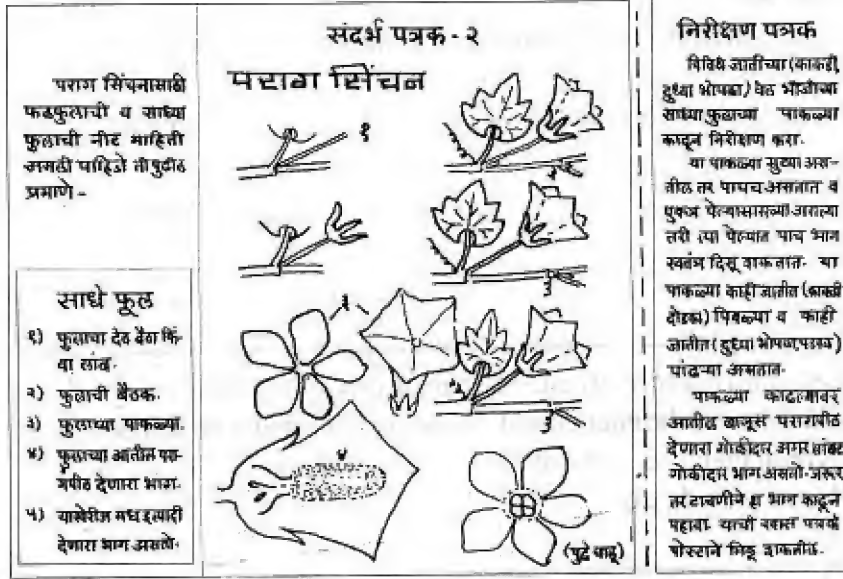 पराग सिंचनासाठी
फळफुलाची व साध्या
फुलाची नीट माहिती
असली पाहिजे ती पुढील
प्रमाणे -
साधे फूल
१) फुलाचा देठ बैठा किं-
वा लांब.
२) फुलाची बैठक.
३) फुलाच्या पाकळ्या.
४) फुलाच्या आतील परा-
गपीठ देणारा भाग.
५) याखेरीज मध इत्यादी
देणारा भाग असतो.
संदर्भ पत्रक - २
पराग सिंचन
१
३
४
(पुढे चालू)
निरीक्षण पत्रक
विविध जातीच्या (काकडी,
दुध्या भोपळा) वेल भाजीच्या
साध्या फुलाच्या पाकळ्या
काढून निरीक्षण करा.
या पाकळ्या सुट्या अस-
तील तर पाचच असतात व
एकत्र पेल्यासारख्या असल्या
तरी त्या पेल्यात पाच भाग
स्वतंत्र दिसू शकतात. या
पाकळ्या काही जातीत (काकडी
दोडका) पिवळ्या व काही
जातीत (दुध्या भोपळा, पडवळ)
पांढऱ्या असतात.
पाकळ्या काढल्यावर
आतील बाजूस परागपीठ
देणारा गोळीदार अगर लांबट
गोळीदार भाग असतो. जरूर
तर टाचणीने हा भाग काढून
पहावा. याची
पोस्टाने मिळू शकतील.